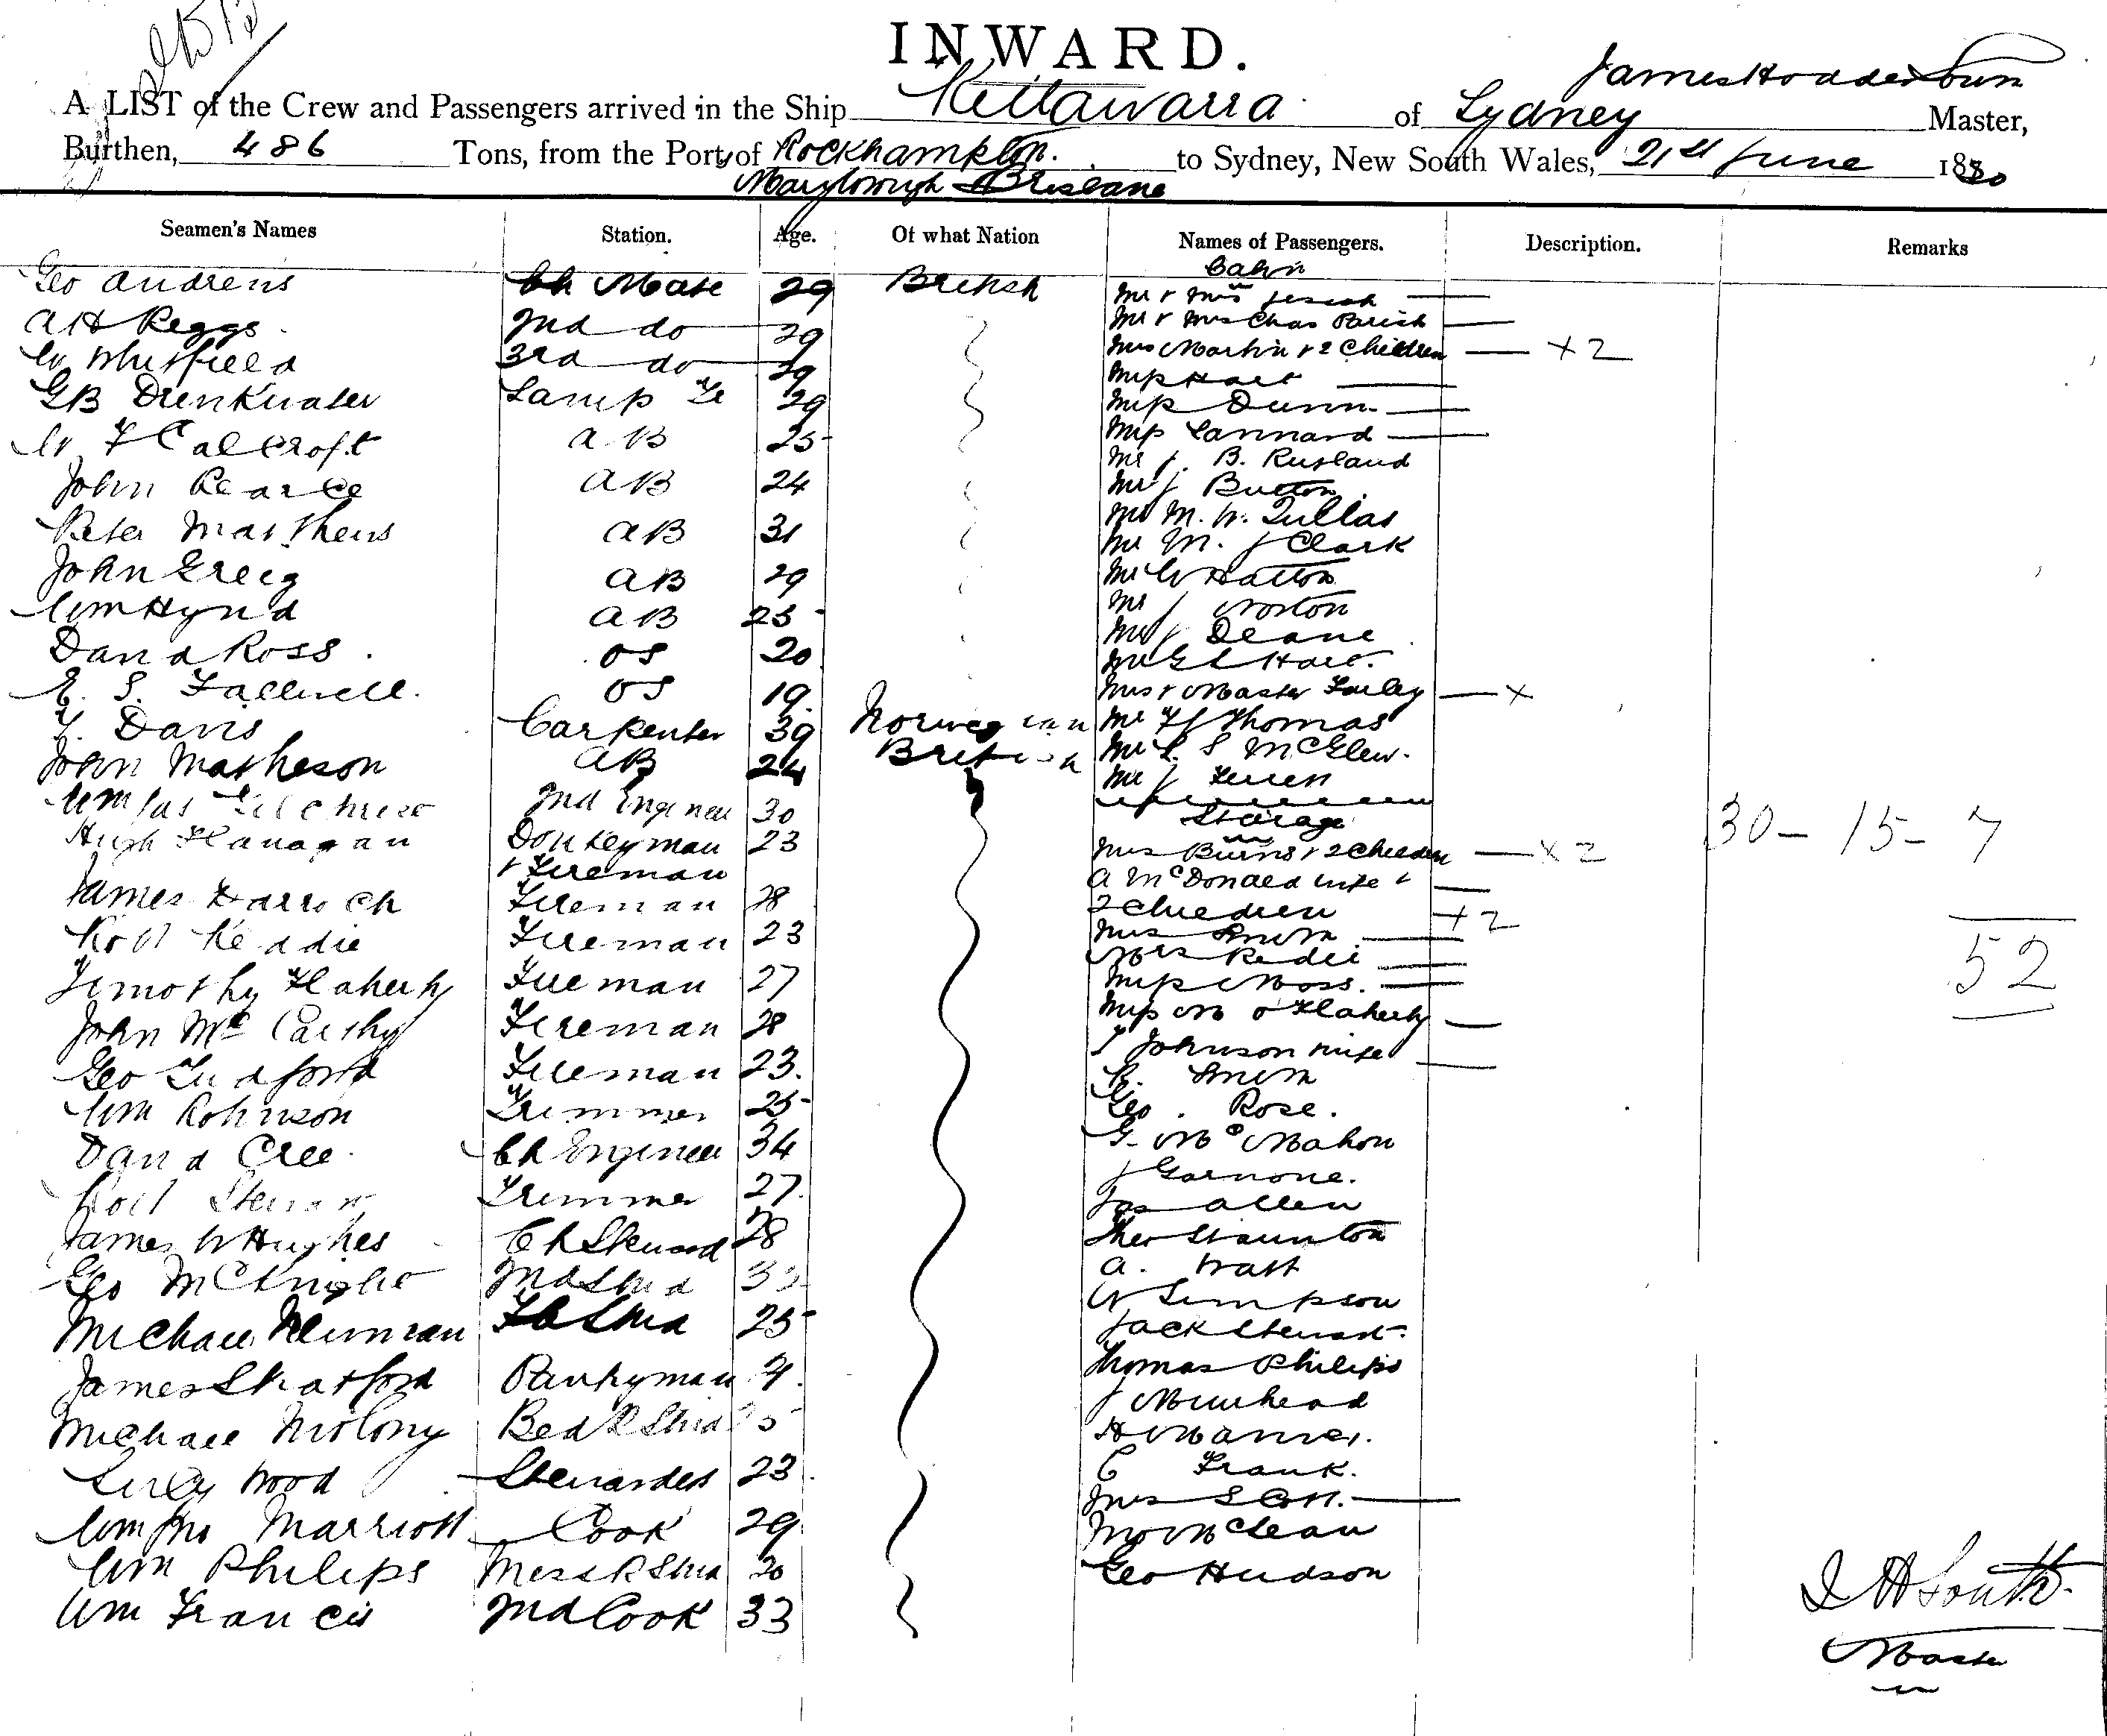 INWARD.
A LIST of the Crew and Passengers arrived in the Ship Kellawarra of Sydney Master,
Burthen, 486 Tons, from the Port of Rockhampton. to Sydney, New South Wales, 21st June 1880
Maryborough & Brisbane
Seamen's Names Station. Age. Of what Nation Names of Passengers. Description. Remarks
Cabin
Geo Andrews Ch Mate 29 British Mr & Mrs
Mr & Mrs Chas Parish
A H Peggs 2nd do 29
Mrs Martin & 2 Children + 2
W Whitfield 3rd do 29
Miss Hart
G B Drinkwater Lamp Tr 29
Miss Dunn
Miss Lannard
W F Calcroft A B 25
Mr J. B. Rusland
John Pearce A B 24
Mr J Button
Mr M. W. Tullas
Peter Matthews A B 31
Mr M. J Clark
John Greig A B 29
Mr W Hatton
Mr J Norton
Wm Hynd A B 25
Mr J Deane
David Ross. O S 20
Mr G L Hart.
E. S. Fallwell. O S 19.
Mrs & Master Farley x
T. Davis Carpenter 39 Norwegian Mr F J Thomas
John Matheson A B 24 British
Mr L S McGlew.
Mr J
Wm Jas Gilchrist 2nd Engineer 30
Steerage
Hugh Flanagan Donkeyman 23
& Fireman
Mrs Burns & 2 Children x 2 30 - 15 - 7
A McDonald wife &
2 Children + 2
James Darroch Fireman 28
Mrs Smith
Robt Keddie Fireman 23
Mrs 52
Timothy Flaherty Fireman 27
Miss Moss.
Miss M O Flaherty
John McCarthy Fireman 28
J Johnson wife
Geo Tudford Fireman 23.
R. Smith
Wm Robinson Trimmer 25
Geo. Rose.
G. McMahon
David Cree. Ch Engineer 34
J Garnone.
Robt Stewart Trimmer 27.
Jas Allen
James W Hughes Ch Steward 28
Thos Staunton
A. Watt
Geo McKnight 2nd Stwd
W Simpson
Michael Newman F C Stwd 25
Jack Stewart.
James Stratford Pantryman
Thomas Philips
J Muirhead
Michael Molony Bed R Stwd
H
C Frank.
Lucy Wood Stewardess 23
Mrs Scott.
Wm Jno Marriott Cook 29
McLean
Wm Philips Mess R Stwd 20
Geo Hudson
Wm Francis 2nd Cook 33
J H South.
Master